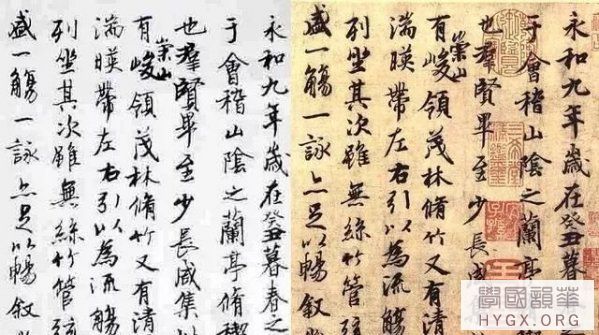 永和九年歲在癸丑暮春之
于會稽山陰之蘭亭脩禊
也羣賢畢至少長咸集
有崇山峻領茂林脩竹又有清
湍暎帶左右引以為流觴
列坐其次雖無絲竹管弦
盛一觴一詠亦足以暢敘
永和九年歲在癸丑暮春
于會稽山陰之蘭亭
也羣賢畢至少長咸
有崇山峻領茂林脩竹又有清
湍暎帶左右引以為流觴
列坐其次雖無絲竹管弦
盛一觴一詠亦足以暢敘
學國韻華
HYGX.ORG